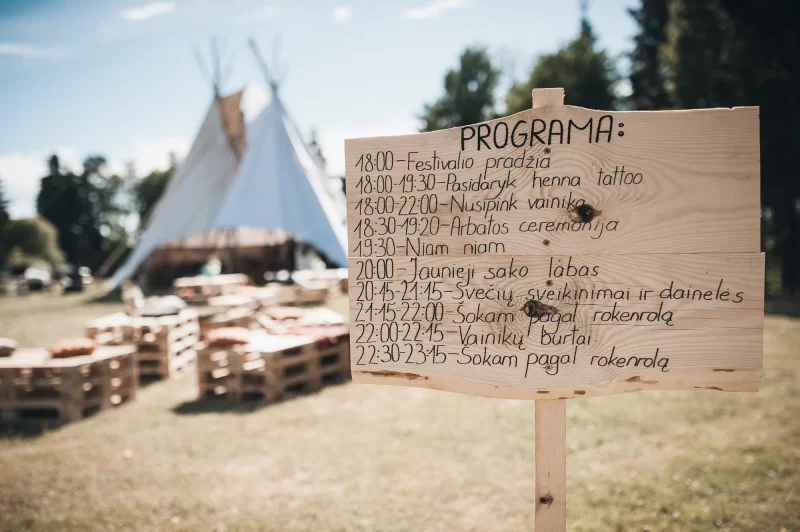 PROGRAMA:
18:00-Festivalio pradžia
18:00-19:30-Pasidaryk henna tattoo
18:00-22:00-Nusipink vainiką
18:30-19:20-Arbatos ceremonija
19:30-Niam niam
20:00-Jaunieji sako labas
20:15-21:15-Svečių sveikinimai ir dainelės
21:15-22:00-Šokam pagal rokenrolą
22:00-22:15-Vainikų burtai
22:30-23:15-Šokam pagal rokenrolą